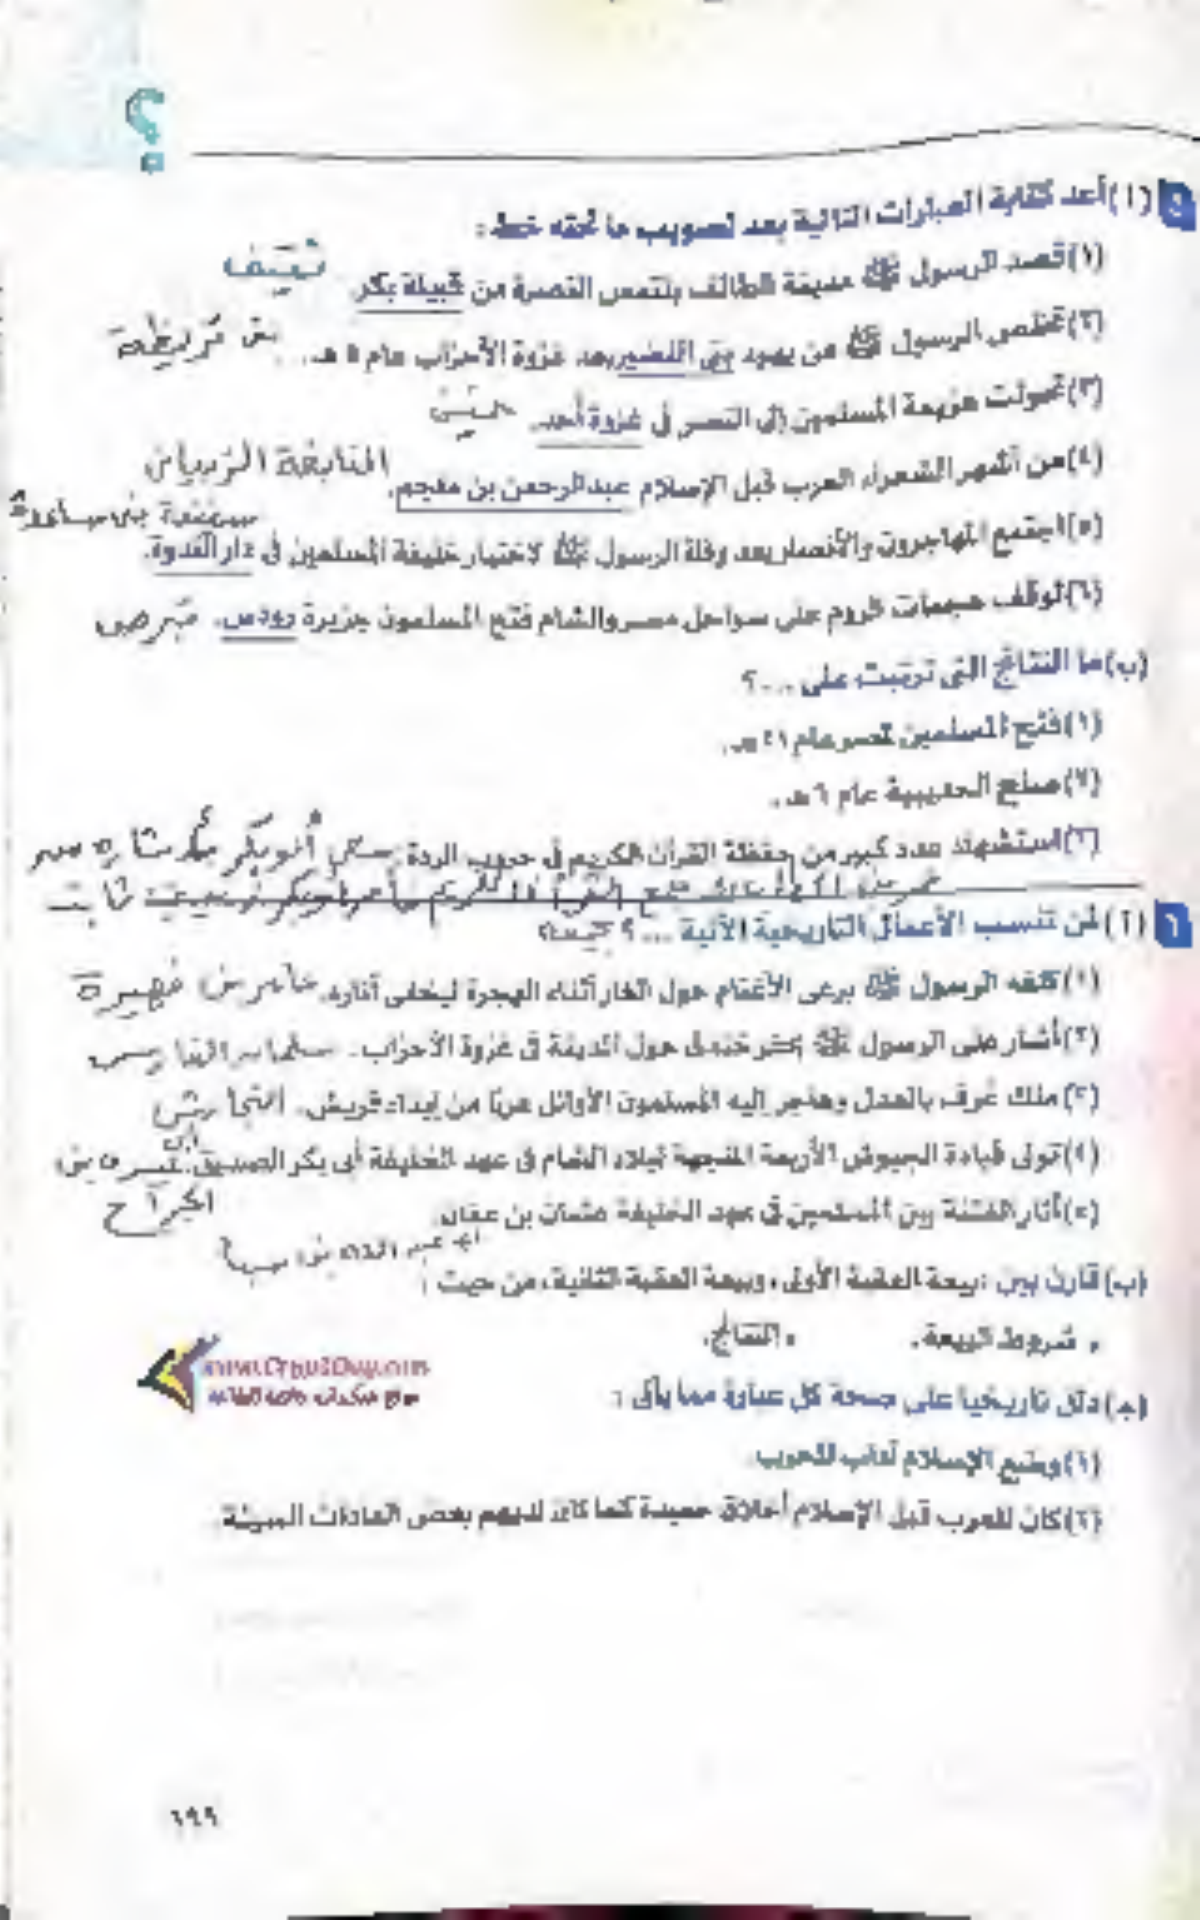 ؟
٥ (أ) أعد كتابة العبارات التالية بعد تصويب ما تحته خط :
(١) قصد الرسول ﷺ مدينة الطائف يلتمس النصرة من قبيلة بكر. ثقيف
(٢) تخلص الرسول ﷺ من يهود بنى النضير بعد غزوة الأحزاب عام ٥ هـ. بنى قريظة
(٣) تحولت هزيمة المسلمين إلى النصر فى غزوة أحد. حنين
(٤) من أشهر الشعراء العرب قبل الإسلام عبدالرحمن بن ملجم. النابغة الزبيانى
(٥) اجتمع المهاجرون والأنصار بعد وفاة الرسول ﷺ لاختيار خليفة المسلمين فى دار الندوة. سقيفة بنى ساعدة
(٦) لوقف هجمات الروم على سواحل مصر والشام فتح المسلمون جزيرة رودس. قبرص
(ب) ما النتائج التى ترتبت على ... ؟
(١) فتح المسلمين لمصر عام ٢١ هـ.
(٢) صلح الحديبية عام ٦ هـ.
(٣) استشهاد عدد كبير من حفظة القرآن الكريم فى حروب الردة.
٦ (أ) لمن تنسب الأعمال التاريخية الآتية ... ؟
(١) كلفه الرسول ﷺ برعى الأغنام حول الغار أثناء الهجرة ليخفى آثاره. عامر بن فهيرة
(٢) أشار على الرسول ﷺ بحفر خندق حول المدينة فى غزوة الأحزاب. سلمان الفارسى
(٣) ملك عُرف بالعدل وهاجر إليه المسلمون الأوائل هربًا من إيذاء قريش. النجاشى
(٤) تولى قيادة الجيوش الأربعة المتجهة لبلاد الشام فى عهد الخليفة أبى بكر الصديق. بن
الجراح
(٥) أثار الفتنة بين المسلمين فى عهد الخليفة عثمان بن عفان.
عبد الله بن سبأ
(ب) قارن بين : بيعة العقبة الأولى ، وبيعة العقبة الثانية ، من حيث :
• شروط البيعة. • النتائج.
(جـ) دلل تاريخيا على صحة كل عبارة مما يأتى :
(١) وضع الإسلام آداب للحروب.
(٢) كان للعرب قبل الإسلام أخلاق حميدة كما كان لديهم بعض العادات السيئة.
١٩٩